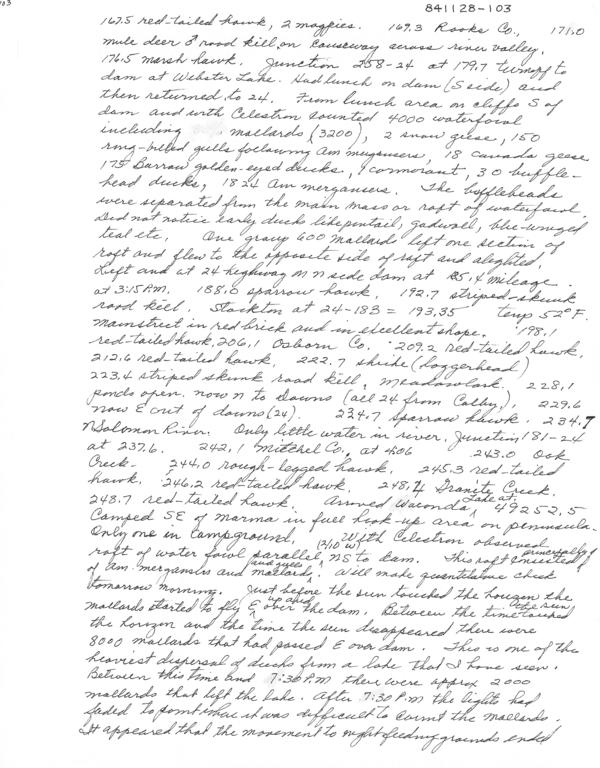 03
841128-103
167.5 red-tailed hawk, 2 magpies. 169.3 Rooks Co., 171.0
mule deer ♂ road kill, on causeway across river valley.
176.5 marsh hawk. Junction 258-24 at 179.7 turnoff to
dam at Webster Lake. Had lunch on dam (S side) and
then returned to 24. From lunch area on cliffs S of
dam and with Celestron counted 4000 waterfowl
including mallards (3200), 2 snow geese, 150
ring-billed gulls following Am mergansers, 18 canada geese
175 Barrow golden-eyed ducks, 1 cormorant, 30 buffle-
head ducks, 1824 Am mergansers. The buffleheads
were separated from the main mass or raft of waterfowl.
Did not notice early ducks like pintail, gadwall, blue-winged
teal etc. One group 600 mallards left one section of
raft and flew to the opposite side of raft and alighted.
Left and at 24 highway on N side dam at 85.4 mileage.
at 3:15 P.M. 188.0 sparrow hawk. 192.7 striped-skunk
road kill. Stockton at 24-183 = 193.35 temp 52° F.
Mainstreet in red brick and in excellent shape. 198.1
red-tailed hawk, 206.1 Osborn Co. 209.2 red-tailed hawk,
212.6 red-tailed hawk. 222.7 shrike (loggerhead)
223.4 striped skunk road kill, meadowlark. 228.1
ponds open. now N to Downs (all 24 from Colby,). 229.6
now E out of downs (24). 234.7 sparrow hawk. 234.7
N Solomon River. Only little water in river. Junction 181-24
at 237.6. 242.1 Mitchel Co., at 4:06 243.0 Oak
Creek. 244.0 rough-legged hawk. 245.3 red-tailed
hawk. 246.2 red-tailed hawk 248.4 Granite Creek.
248.7 red-tailed hawk. Arrived Waconda Lake at 49252.5
Camped SE of marina in full hook-up area on peninsula.
Only one in campground. With Celestron observed
raft of water fowl parallel (2/10 w) NS to dam. This raft consisted principally
of Am. mergansers and gulls and mallards. Will make quantitative check
tomorrow morning. Just before the sun touched the horizon the
mallards started to fly up and E over the dam. Between the time the sun touched
the horizon and the time the sun disappeared there were
8000 mallards that had passed E over dam. This is one of the
heaviest dispersal of ducks from a lake that I have seen.
Between this time and 7:30 P.M there were approx 2000
mallards that left the lake. After 7:30 P.m the lights had
faded to point where it was difficult to count the mallards.
It appeared that the movement to night feeding grounds ended